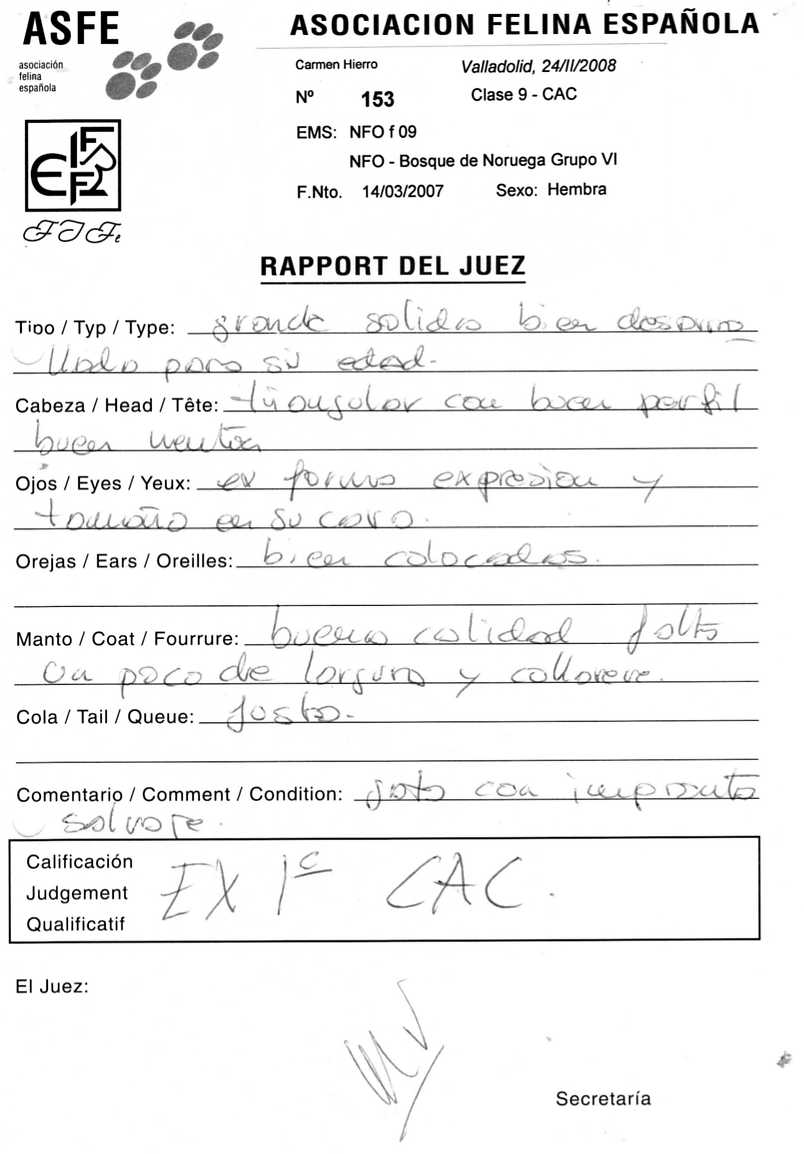 ASFE
asociación
felina
española
ASOCIACION FELINA ESPAÑOLA
Carmen Hierro
Valladolid, 24/II/2008
Nº 153
Clase 9 - CAC
EMS: NFO f 09
NFO - Bosque de Noruega Grupo VI
F.Nto. 14/03/2007 Sexo: Hembra
FIFe
RAPPORT DEL JUEZ
Tipo / Typ / Type: grande solida bien desarro
llada para su edad.
Cabeza / Head / Tête: triangular con buen perfil
buen menton
Ojos / Eyes / Yeux: ex forma expresion y
tamaño en su cara.
Orejas / Ears / Oreilles: bien colocadas.
Manto / Coat / Fourrure: buena calidad falta
un poco de largura y collarete.
Cola / Tail / Queue: justa.
Comentario / Comment / Condition: gata con impronta
salvaje.
Calificación
Judgement
Qualificatif
EX 1º CAC.
El Juez:
Secretaría